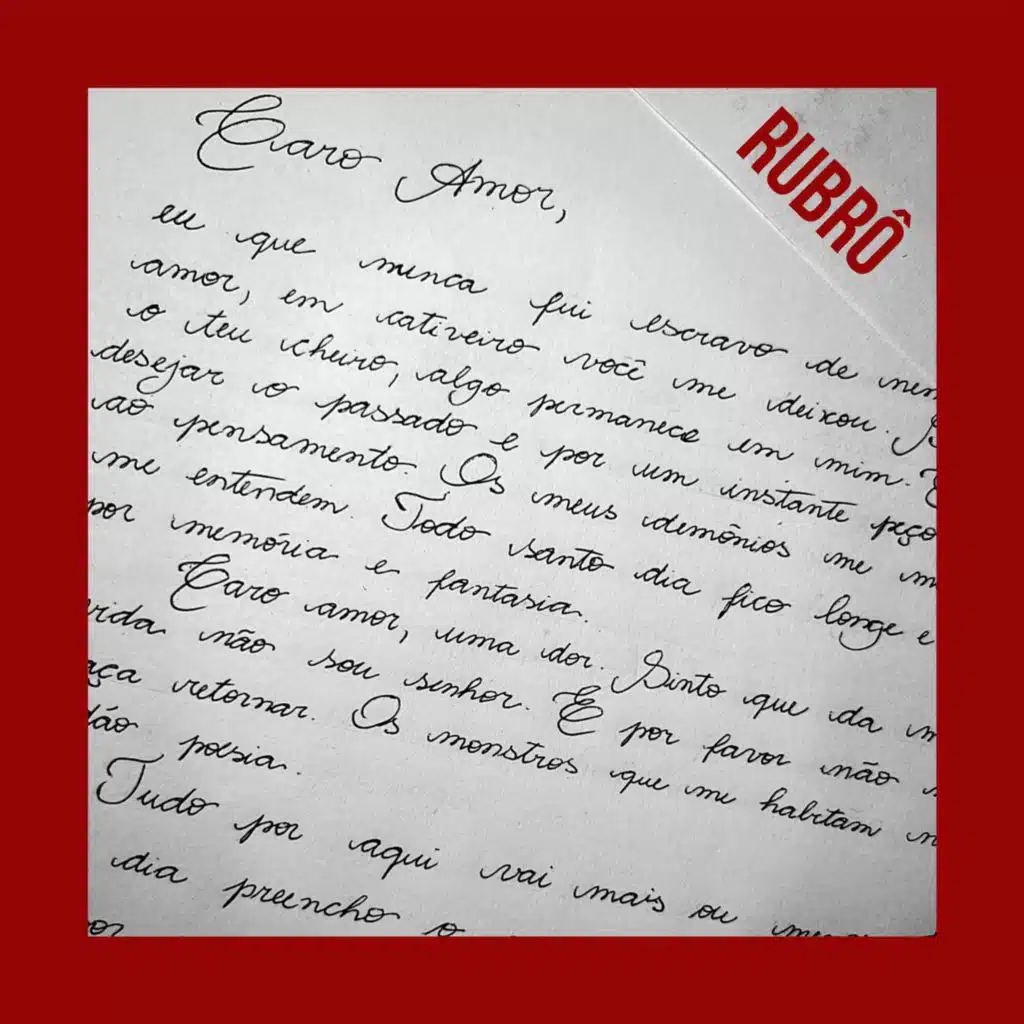 RUBRÔ
Caro Amor,
eu que nunca fui escravo de nen
amor, em cativeiro você me deixou.
o teu cheiro, algo permanece em mim.
desejar o passado e por um instante peço
ao pensamento. Os meus demônios me m
me entendem. Todo santo dia fico longe e
por memória e fantasia.
Caro amor, uma dor. Sinto que da m
vida não sou senhor. E por favor não
aça retornar. Os monstros que me habitam n
dão poesia.
Tudo por aqui vai mais ou me
dia preencho o